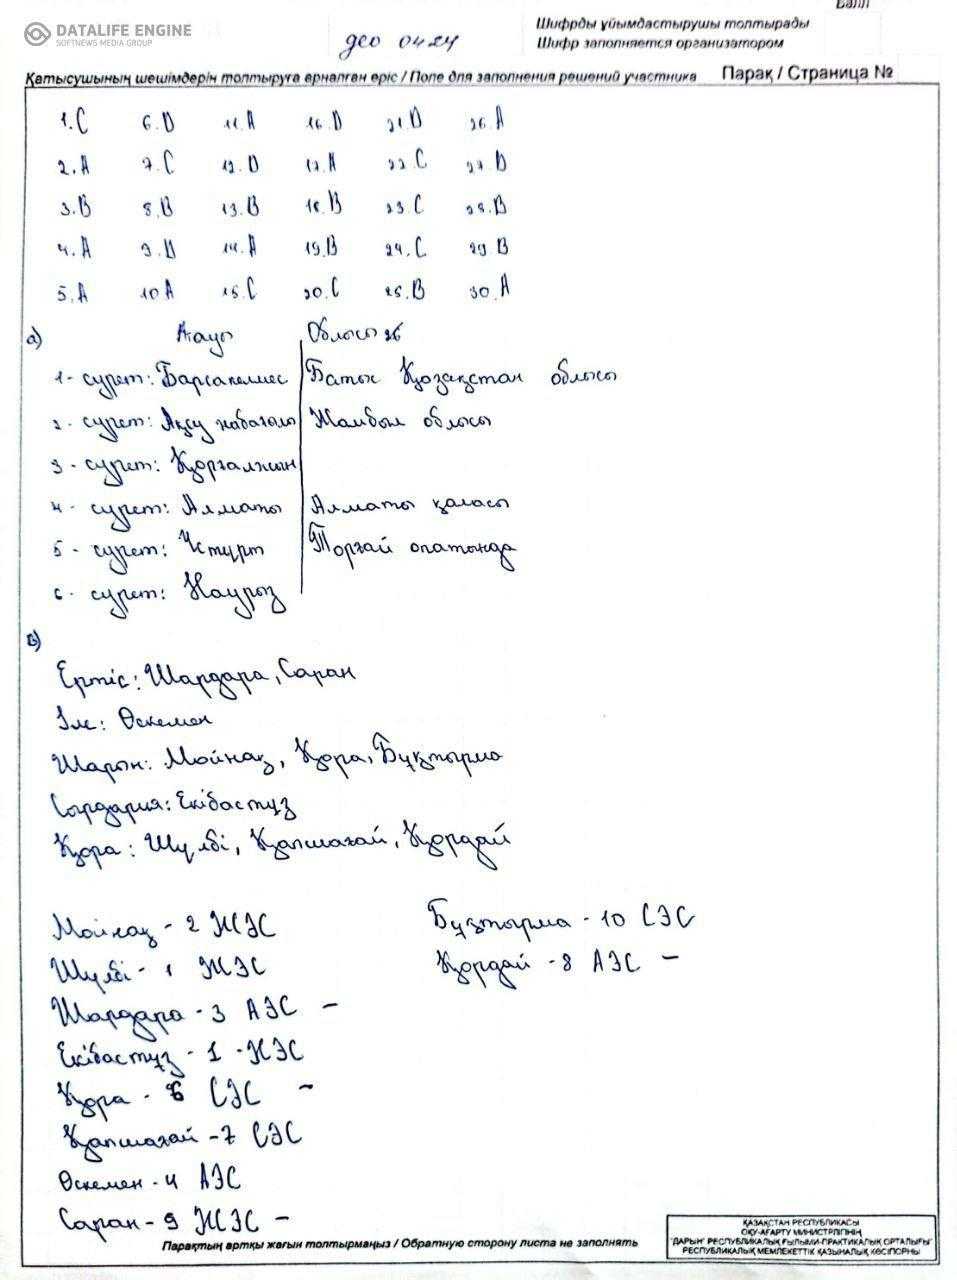 Балл
DATALIFE ENGINE
SOFTNEWS MEDIA GROUP
Шифрды ұйымдастырушы толтырады
гео 0424
Шифр заполняется организатором
Қатысушының шешімдерін толтыруға арналған өріс / Поле для заполнения решений участника Парақ / Страница №
1.C 6.D 11.A 16.D 21.D 26.A
2.A 7.C 12.D 17.A 22 C 27.D
3.B 8.B 13.B 18.B 23 C 28.B
4.A 9.D 14.A 19.B 24.C 29 B
5.A 10 A 15.C 20.C 25.B 30.A
а) Атауы Облысы
1- сурет: Барсакелмес Батыс Қазақстан облысы
2- сурет: Ақсу жабағылы Жамбыл облысы
3- сурет: Қорғалжын
4- сурет: Алматы Алматы қаласы
5- сурет: Үстүрт Торғай опатында
6- сурет: Наурыз
в)
Ертіс: Шардара, Саран
Іле: Өскемен
Шарын: Мойнақ, Қара, Бұқтырма
Сырдария: Екібастұз
Қара: Шүлбі, Қапшағай, Қордай
Мойнақ - 2 ЖЭС Бұқтырма - 10 СЭС
Шүлбі - 1 ЖЭС Қордай - 8 АЭС –
Шардара - 3 АЭС –
Екібастұз - 1 - ЖЭС
Қара - 6 СЭС –
Қапшағай - 7 СЭС
Өскемен - 4 АЭС
Саран - 9 ЖЭС –
Парақтың артқы жағын толтырмаңыз / Обратную сторону листа не заполнять
ҚАЗАҚСТАН РЕСПУБЛИКАСЫ
ОҚУ-АҒАРТУ МИНИСТРЛІГІНІҢ
"ДАРЫН" РЕСПУБЛИКАЛЫҚ ҒЫЛЫМИ-ПРАКТИКАЛЫҚ ОРТАЛЫҒЫ"
РЕСПУБЛИКАЛЫҚ МЕМЛЕКЕТТІК ҚАЗЫНАЛЫҚ КӘСІПОРНЫ